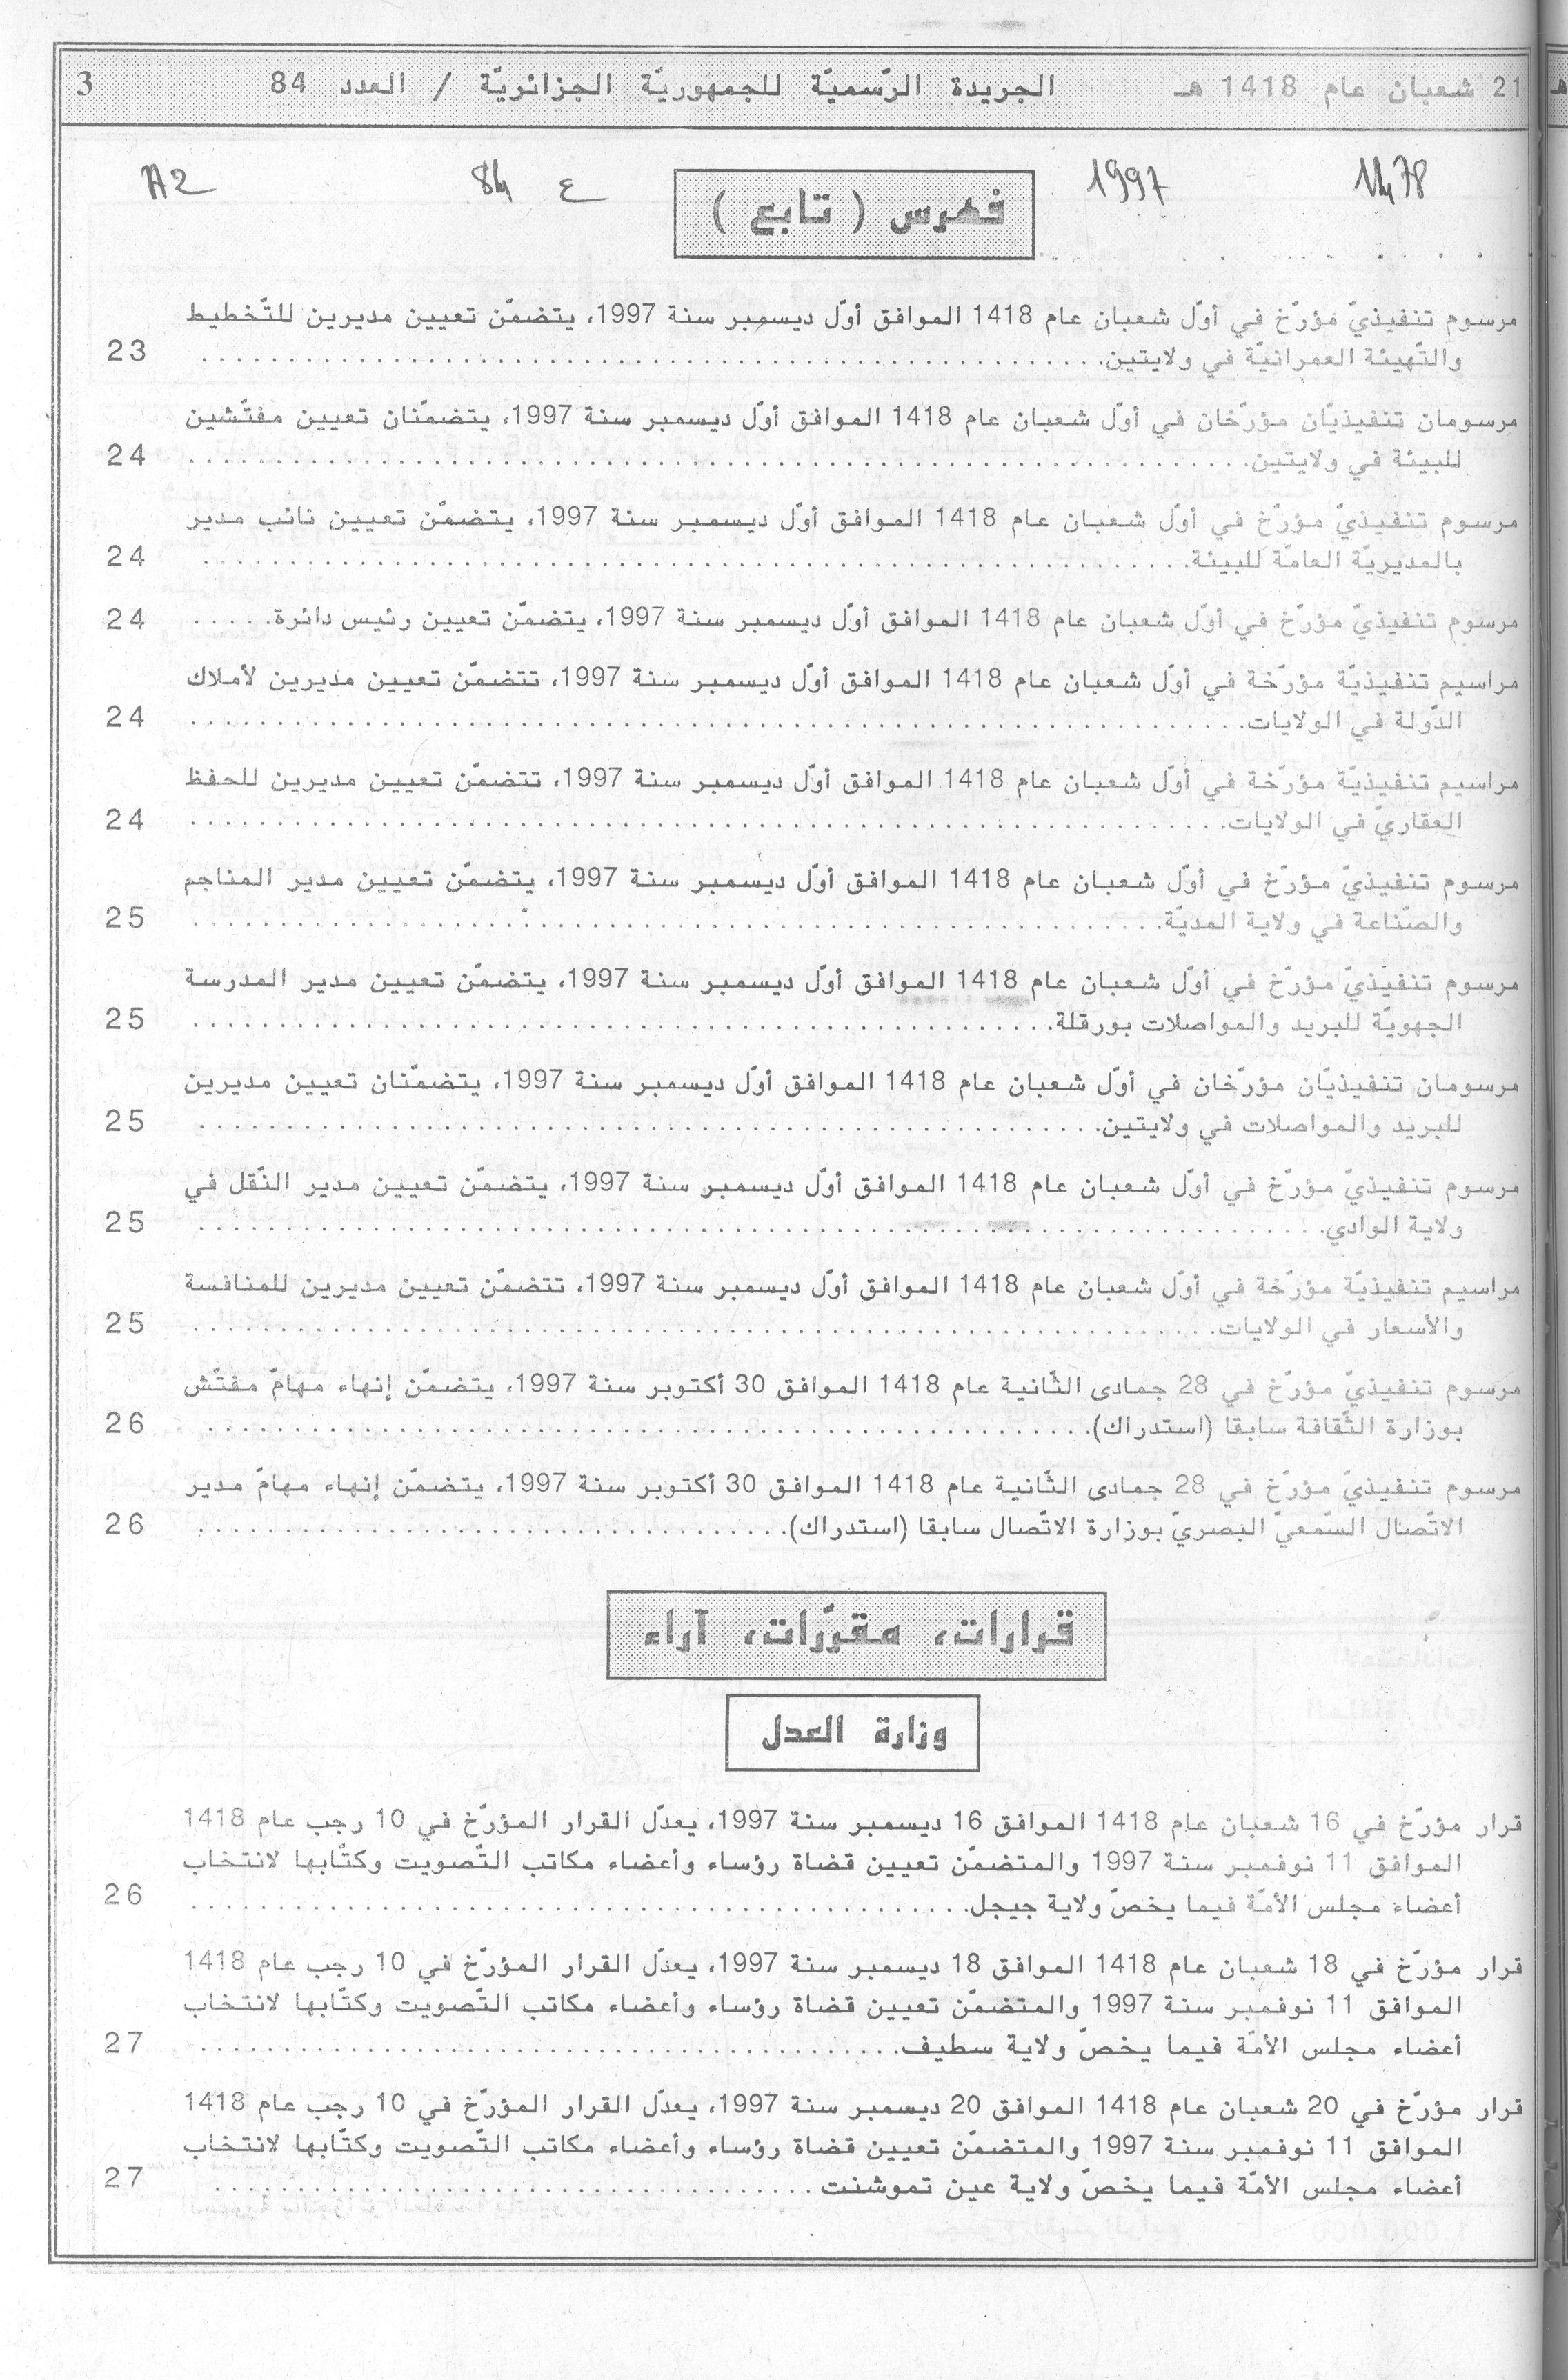 21 شعبان عام 1418 هـ الجريدة الرّسميّة للجمهوريّة الجزائريّة / العدد 84 3
1997 84 ع A2
فهرس ( تابع )
مرسوم تنفيذيّ مؤرّخ في أوّل شعبان عام 1418 الموافق أوّل ديسمبر سنة 1997، يتضمّن تعيين مديرين للتّخطيط
والتّهيئة العمرانيّة في ولايتين. 23
مرسومان تنفيذيّان مؤرّخان في أوّل شعبان عام 1418 الموافق أوّل ديسمبر سنة 1997، يتضمّنان تعيين مفتّشين
للبيئة في ولايتين. 24
مرسوم تنفيذيّ مؤرّخ في أوّل شعبان عام 1418 الموافق أوّل ديسمبر سنة 1997، يتضمّن تعيين نائب مدير
بالمديريّة العامّة للبيئة. 24
مرسوم تنفيذيّ مؤرّخ في أوّل شعبان عام 1418 الموافق أوّل ديسمبر سنة 1997، يتضمّن تعيين رئيس دائرة. 24
مراسيم تنفيذيّة مؤرّخة في أوّل شعبان عام 1418 الموافق أوّل ديسمبر سنة 1997، تتضمّن تعيين مديرين لأملاك
الدّولة في الولايات. 24
مراسيم تنفيذيّة مؤرّخة في أوّل شعبان عام 1418 الموافق أوّل ديسمبر سنة 1997، تتضمّن تعيين مديرين للحفظ
العقاريّ في الولايات. 24
مرسوم تنفيذيّ مؤرّخ في أوّل شعبان عام 1418 الموافق أوّل ديسمبر سنة 1997، يتضمّن تعيين مدير المناجم
والصّناعة في ولاية المديّة. 25
مرسوم تنفيذيّ مؤرّخ في أوّل شعبان عام 1418 الموافق أوّل ديسمبر سنة 1997، يتضمّن تعيين مدير المدرسة
الجهويّة للبريد والمواصلات بورقلة. 25
مرسومان تنفيذيّان مؤرّخان في أوّل شعبان عام 1418 الموافق أوّل ديسمبر سنة 1997، يتضمّنان تعيين مديرين
للبريد والمواصلات في ولايتين. 25
مرسوم تنفيذيّ مؤرّخ في أوّل شعبان عام 1418 الموافق أوّل ديسمبر سنة 1997، يتضمّن تعيين مدير النّقل في
ولاية الوادي. 25
مراسيم تنفيذيّة مؤرّخة في أوّل شعبان عام 1418 الموافق أوّل ديسمبر سنة 1997، تتضمّن تعيين مديرين للمنافسة
والأسعار في الولايات. 25
مرسوم تنفيذيّ مؤرّخ في 28 جمادى الثّانية عام 1418 الموافق 30 أكتوبر سنة 1997، يتضمّن إنهاء مهامّ مفتّش
بوزارة الثّقافة سابقا (استدراك). 26
مرسوم تنفيذيّ مؤرّخ في 28 جمادى الثّانية عام 1418 الموافق 30 أكتوبر سنة 1997، يتضمّن إنهاء مهامّ مدير
الاتّصال السّمعيّ البصريّ بوزارة الاتّصال سابقا (استدراك). 26
قرارات، مقرّرات، آراء
وزارة العدل
قرار مؤرّخ في 16 شعبان عام 1418 الموافق 16 ديسمبر سنة 1997، يعدّل القرار المؤرّخ في 10 رجب عام 1418
الموافق 11 نوفمبر سنة 1997 والمتضمّن تعيين قضاة رؤساء وأعضاء مكاتب التّصويت وكتّابها لانتخاب
أعضاء مجلس الأمّة فيما يخصّ ولاية جيجل. 26
قرار مؤرّخ في 18 شعبان عام 1418 الموافق 18 ديسمبر سنة 1997، يعدّل القرار المؤرّخ في 10 رجب عام 1418
الموافق 11 نوفمبر سنة 1997 والمتضمّن تعيين قضاة رؤساء وأعضاء مكاتب التّصويت وكتّابها لانتخاب
أعضاء مجلس الأمّة فيما يخصّ ولاية سطيف. 27
قرار مؤرّخ في 20 شعبان عام 1418 الموافق 20 ديسمبر سنة 1997، يعدّل القرار المؤرّخ في 10 رجب عام 1418
الموافق 11 نوفمبر سنة 1997 والمتضمّن تعيين قضاة رؤساء وأعضاء مكاتب التّصويت وكتّابها لانتخاب
أعضاء مجلس الأمّة فيما يخصّ ولاية عين تموشنت 27